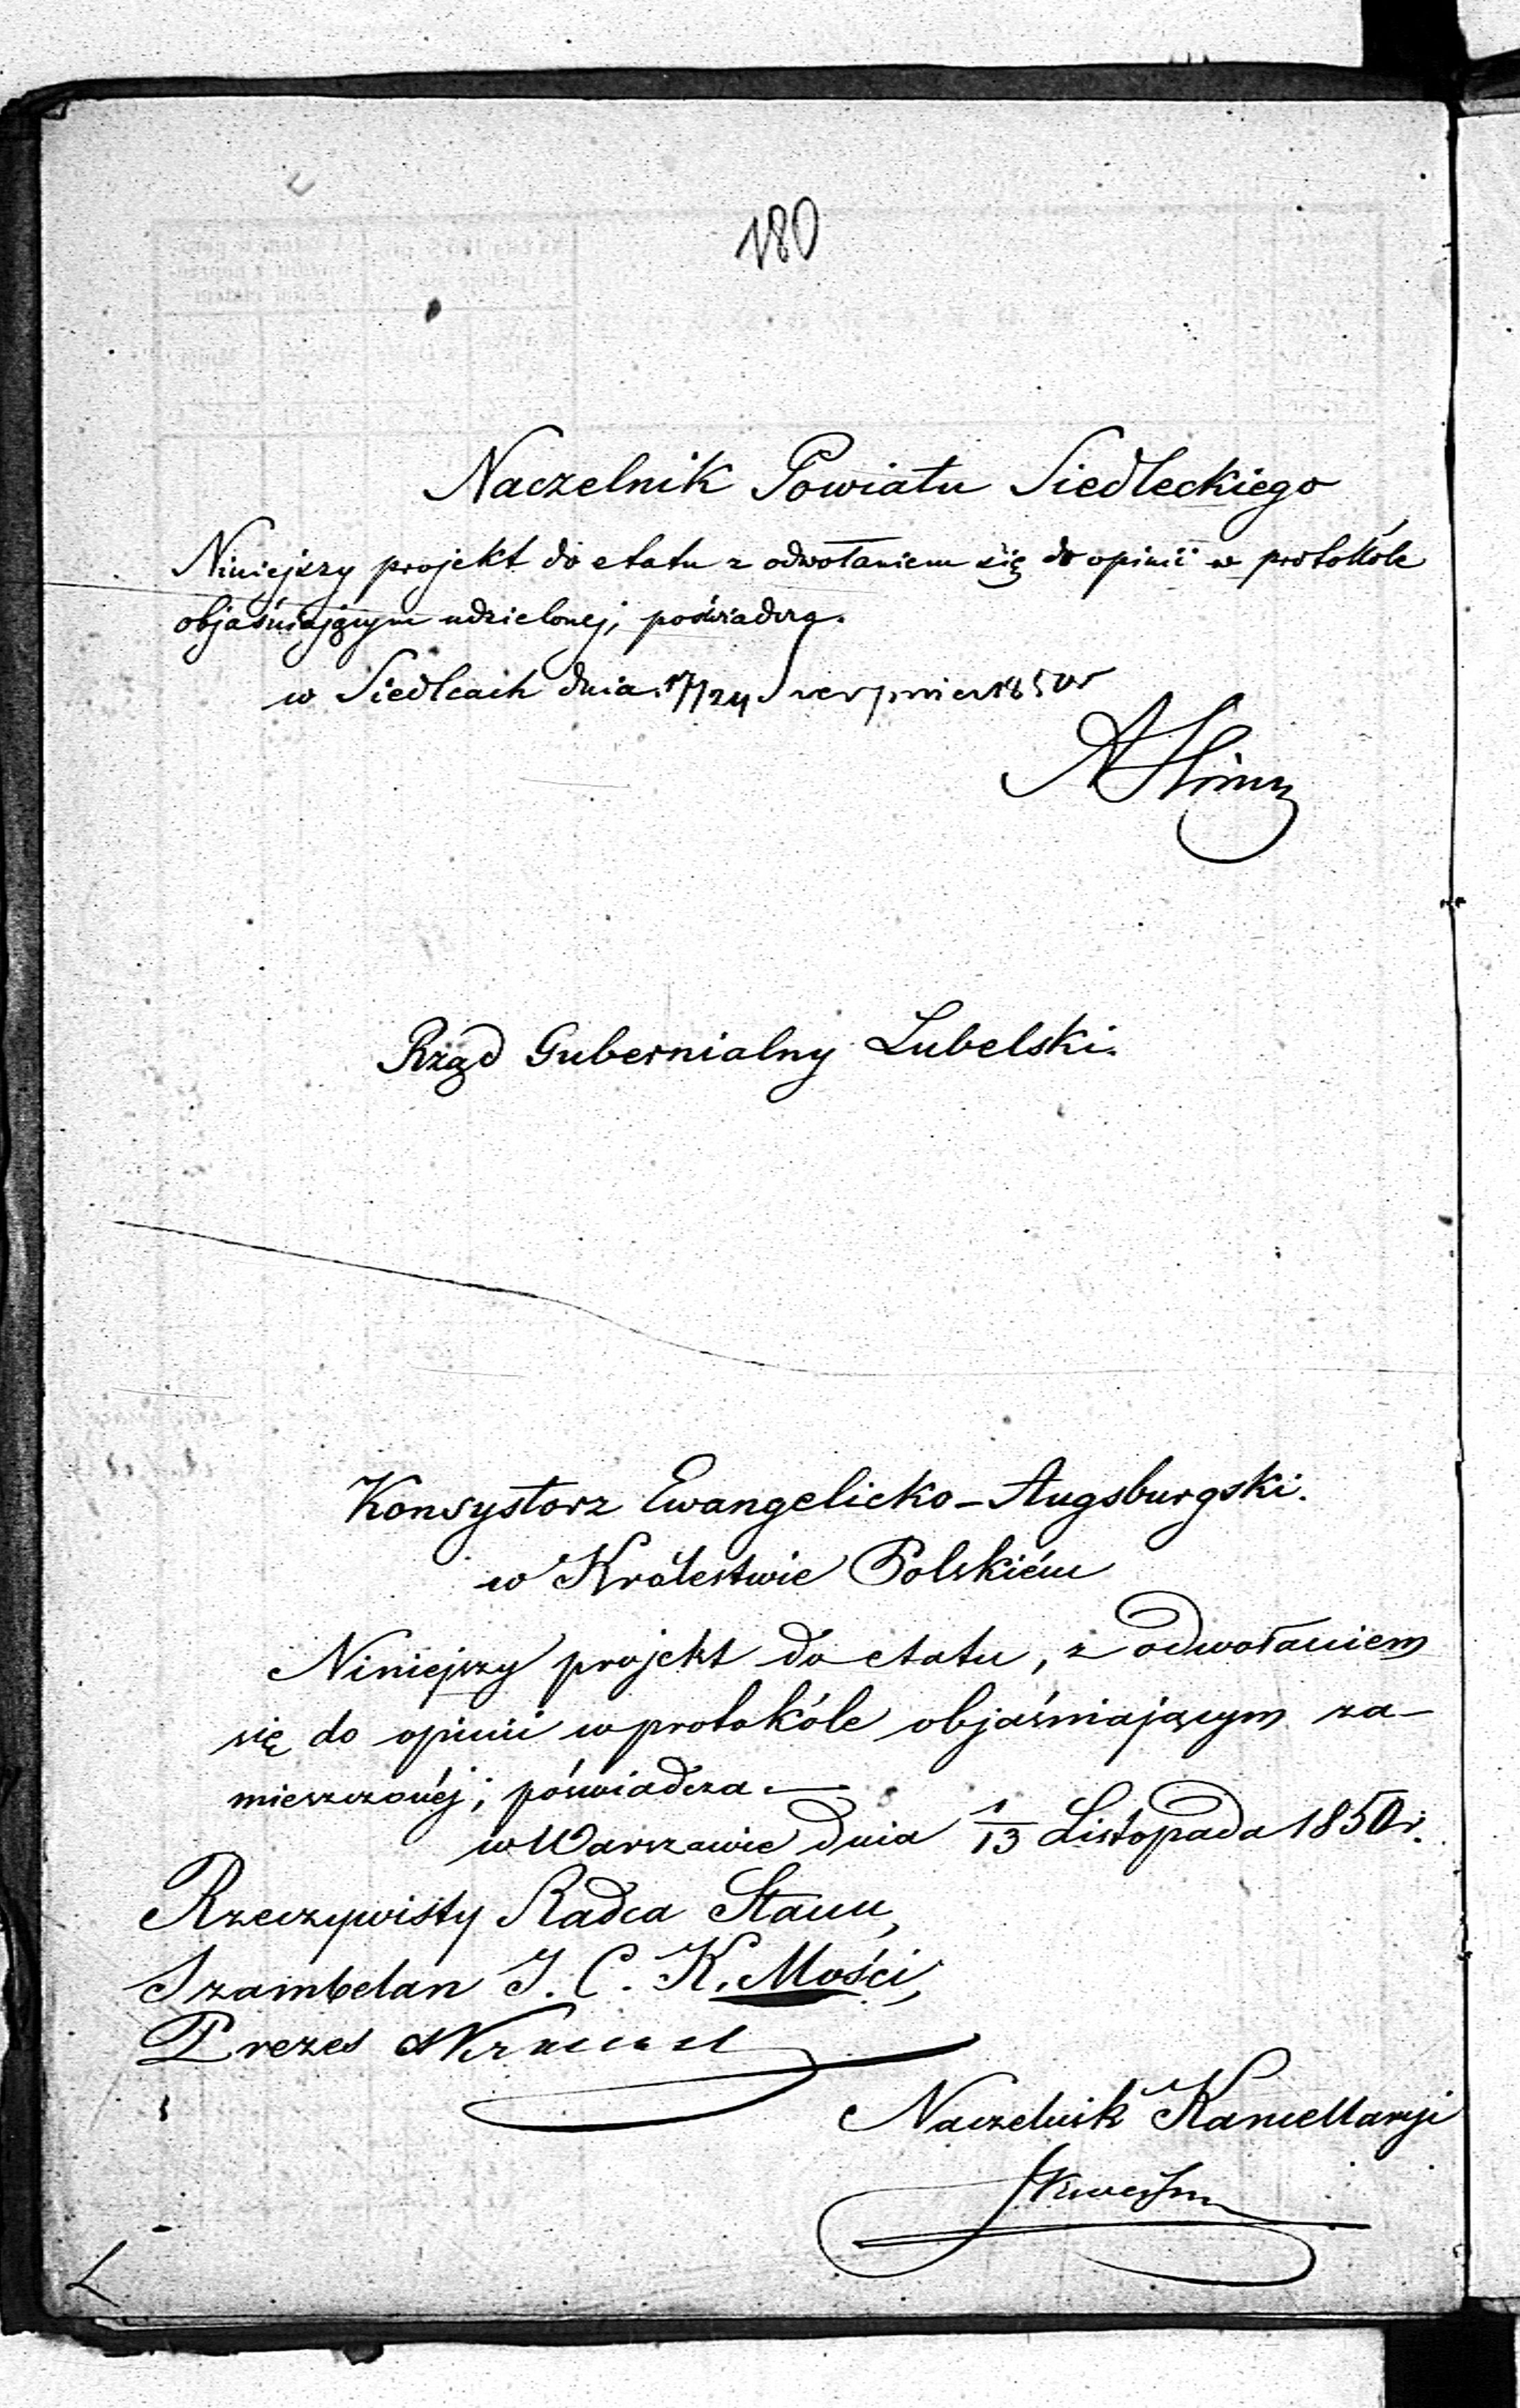 180
Naczelnik Powiatu Siedleckiego
Niniejszy projekt do etatu z odwołaniem się do opinii w protokóle
objaśniającym udzielonej, poświadcza.
w Siedlcach dnia 17/24 Sierpnia 1850r
Rząd Gubernialny Lubelski.
Konsystorz Ewangelicko-Augsburgski.
w Królestwie Polskiém
Niniejszy projekt do etatu, z odwołaniem
się do opinii w protokóle objaśniającym za-
mieszczonéj; poświadcza.
w Warszawie dnia 1/13 Listopada 1850 r.
Rzeczywisty Radca Stanu,
Szambelan J. C. K. Mości,
Prezes
Naczelnik Kancellaryi